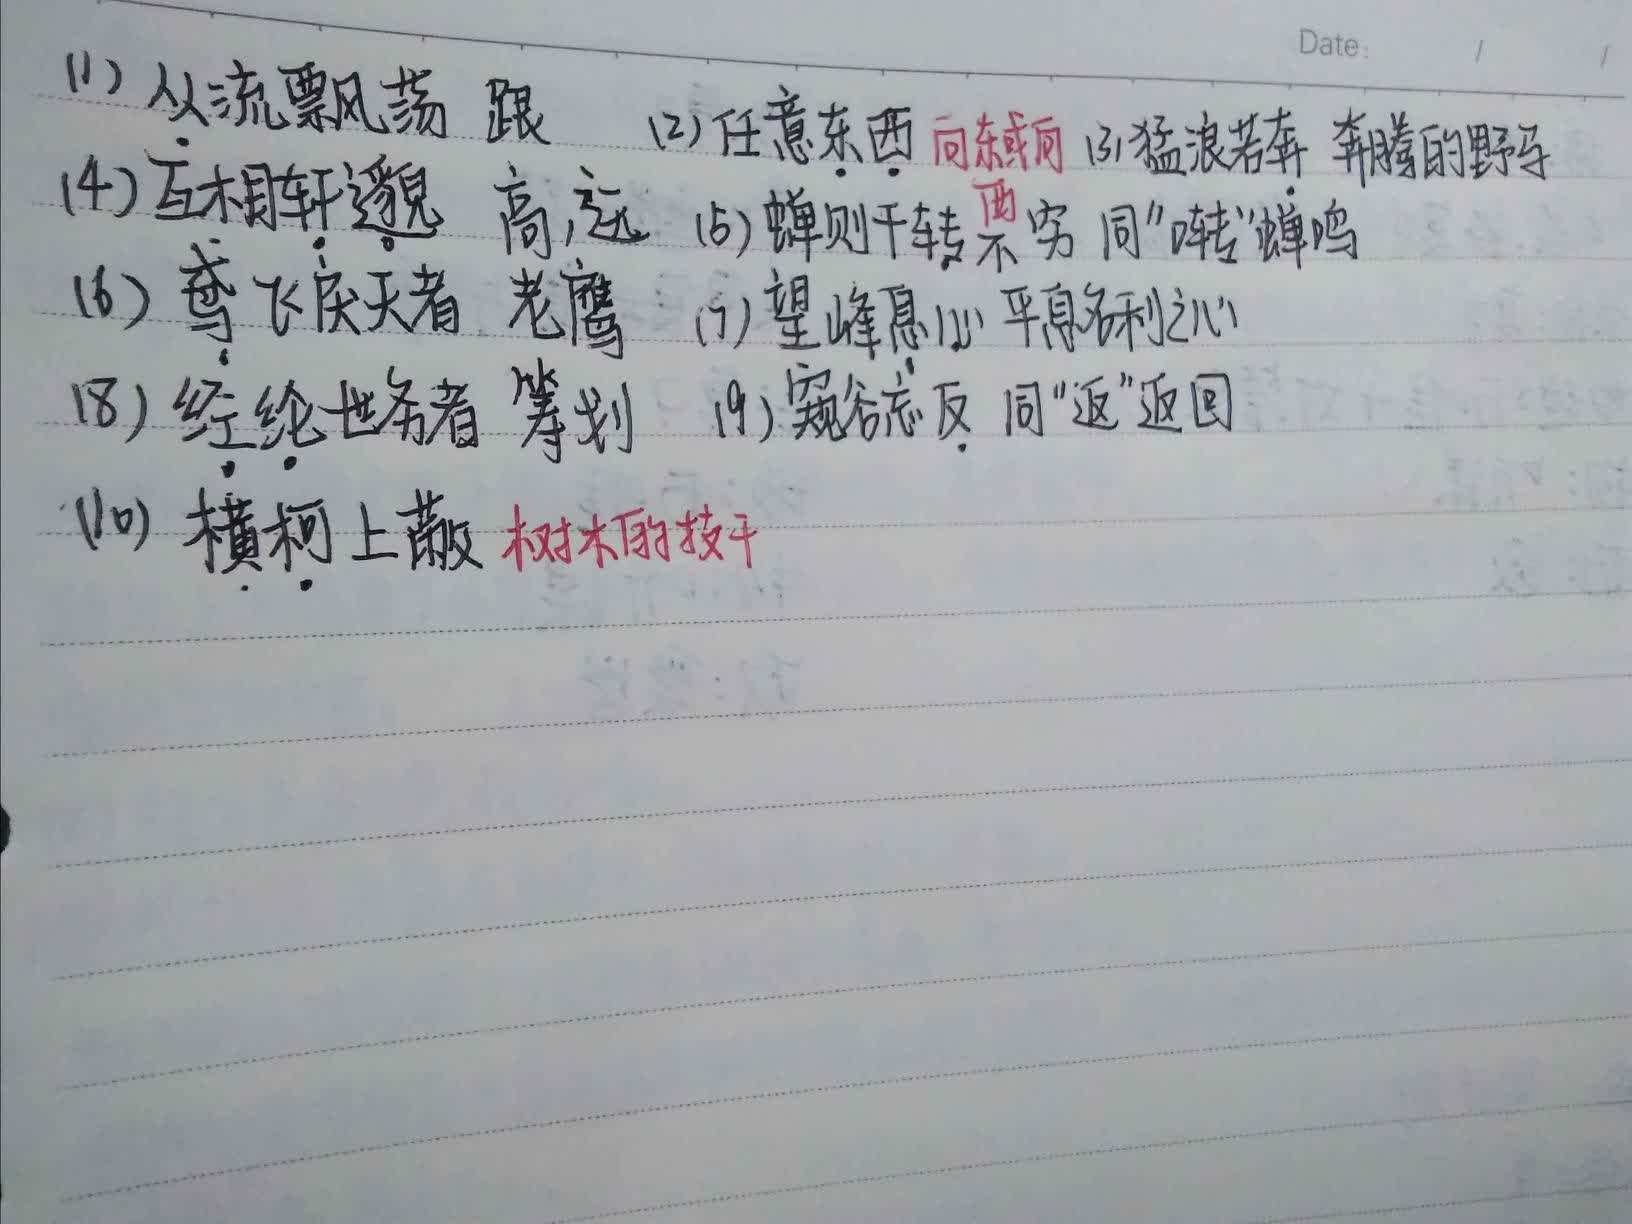 Date: / /
(1) 从流飘风荡 跟 (2) 任意东西 向东或向西 (3) 猛浪若奔 奔腾的野马
(4) 互相轩邈 高,远 (5) 蝉则千转不穷 同“啭”蝉鸣
(6) 鸢飞戾天者 老鹰 (7) 望峰息心 平息名利之心
(8) 经纶世务者 筹划 (9) 窥谷忘反 同“返”返回
(10) 横柯上蔽 树木的技干